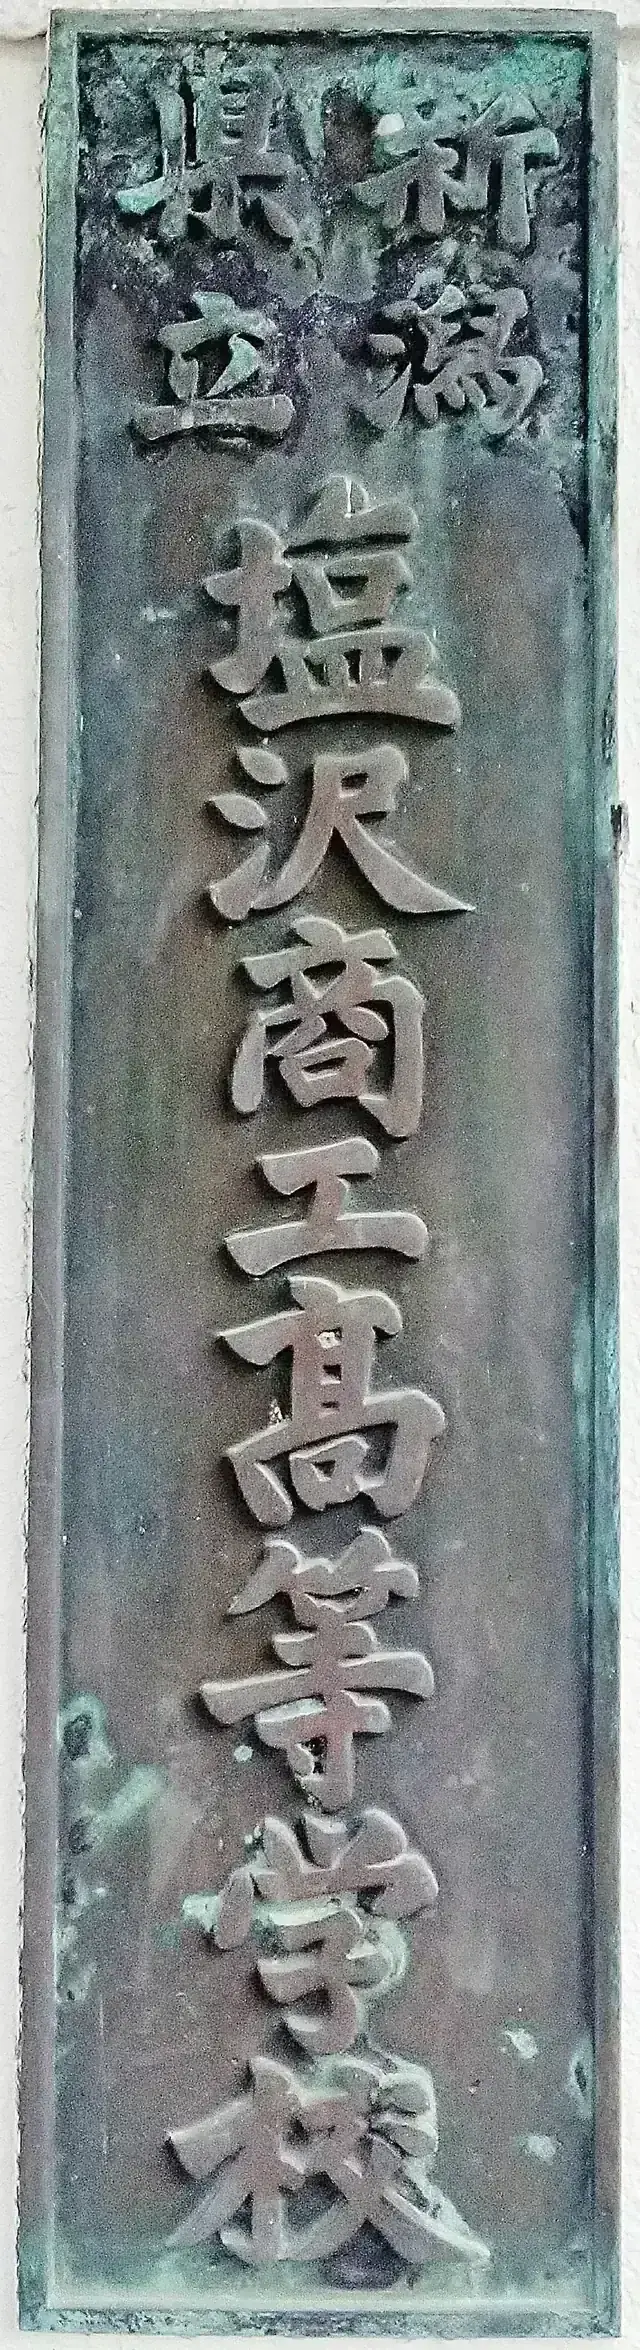 新潟
県立
塩沢商工髙等学校